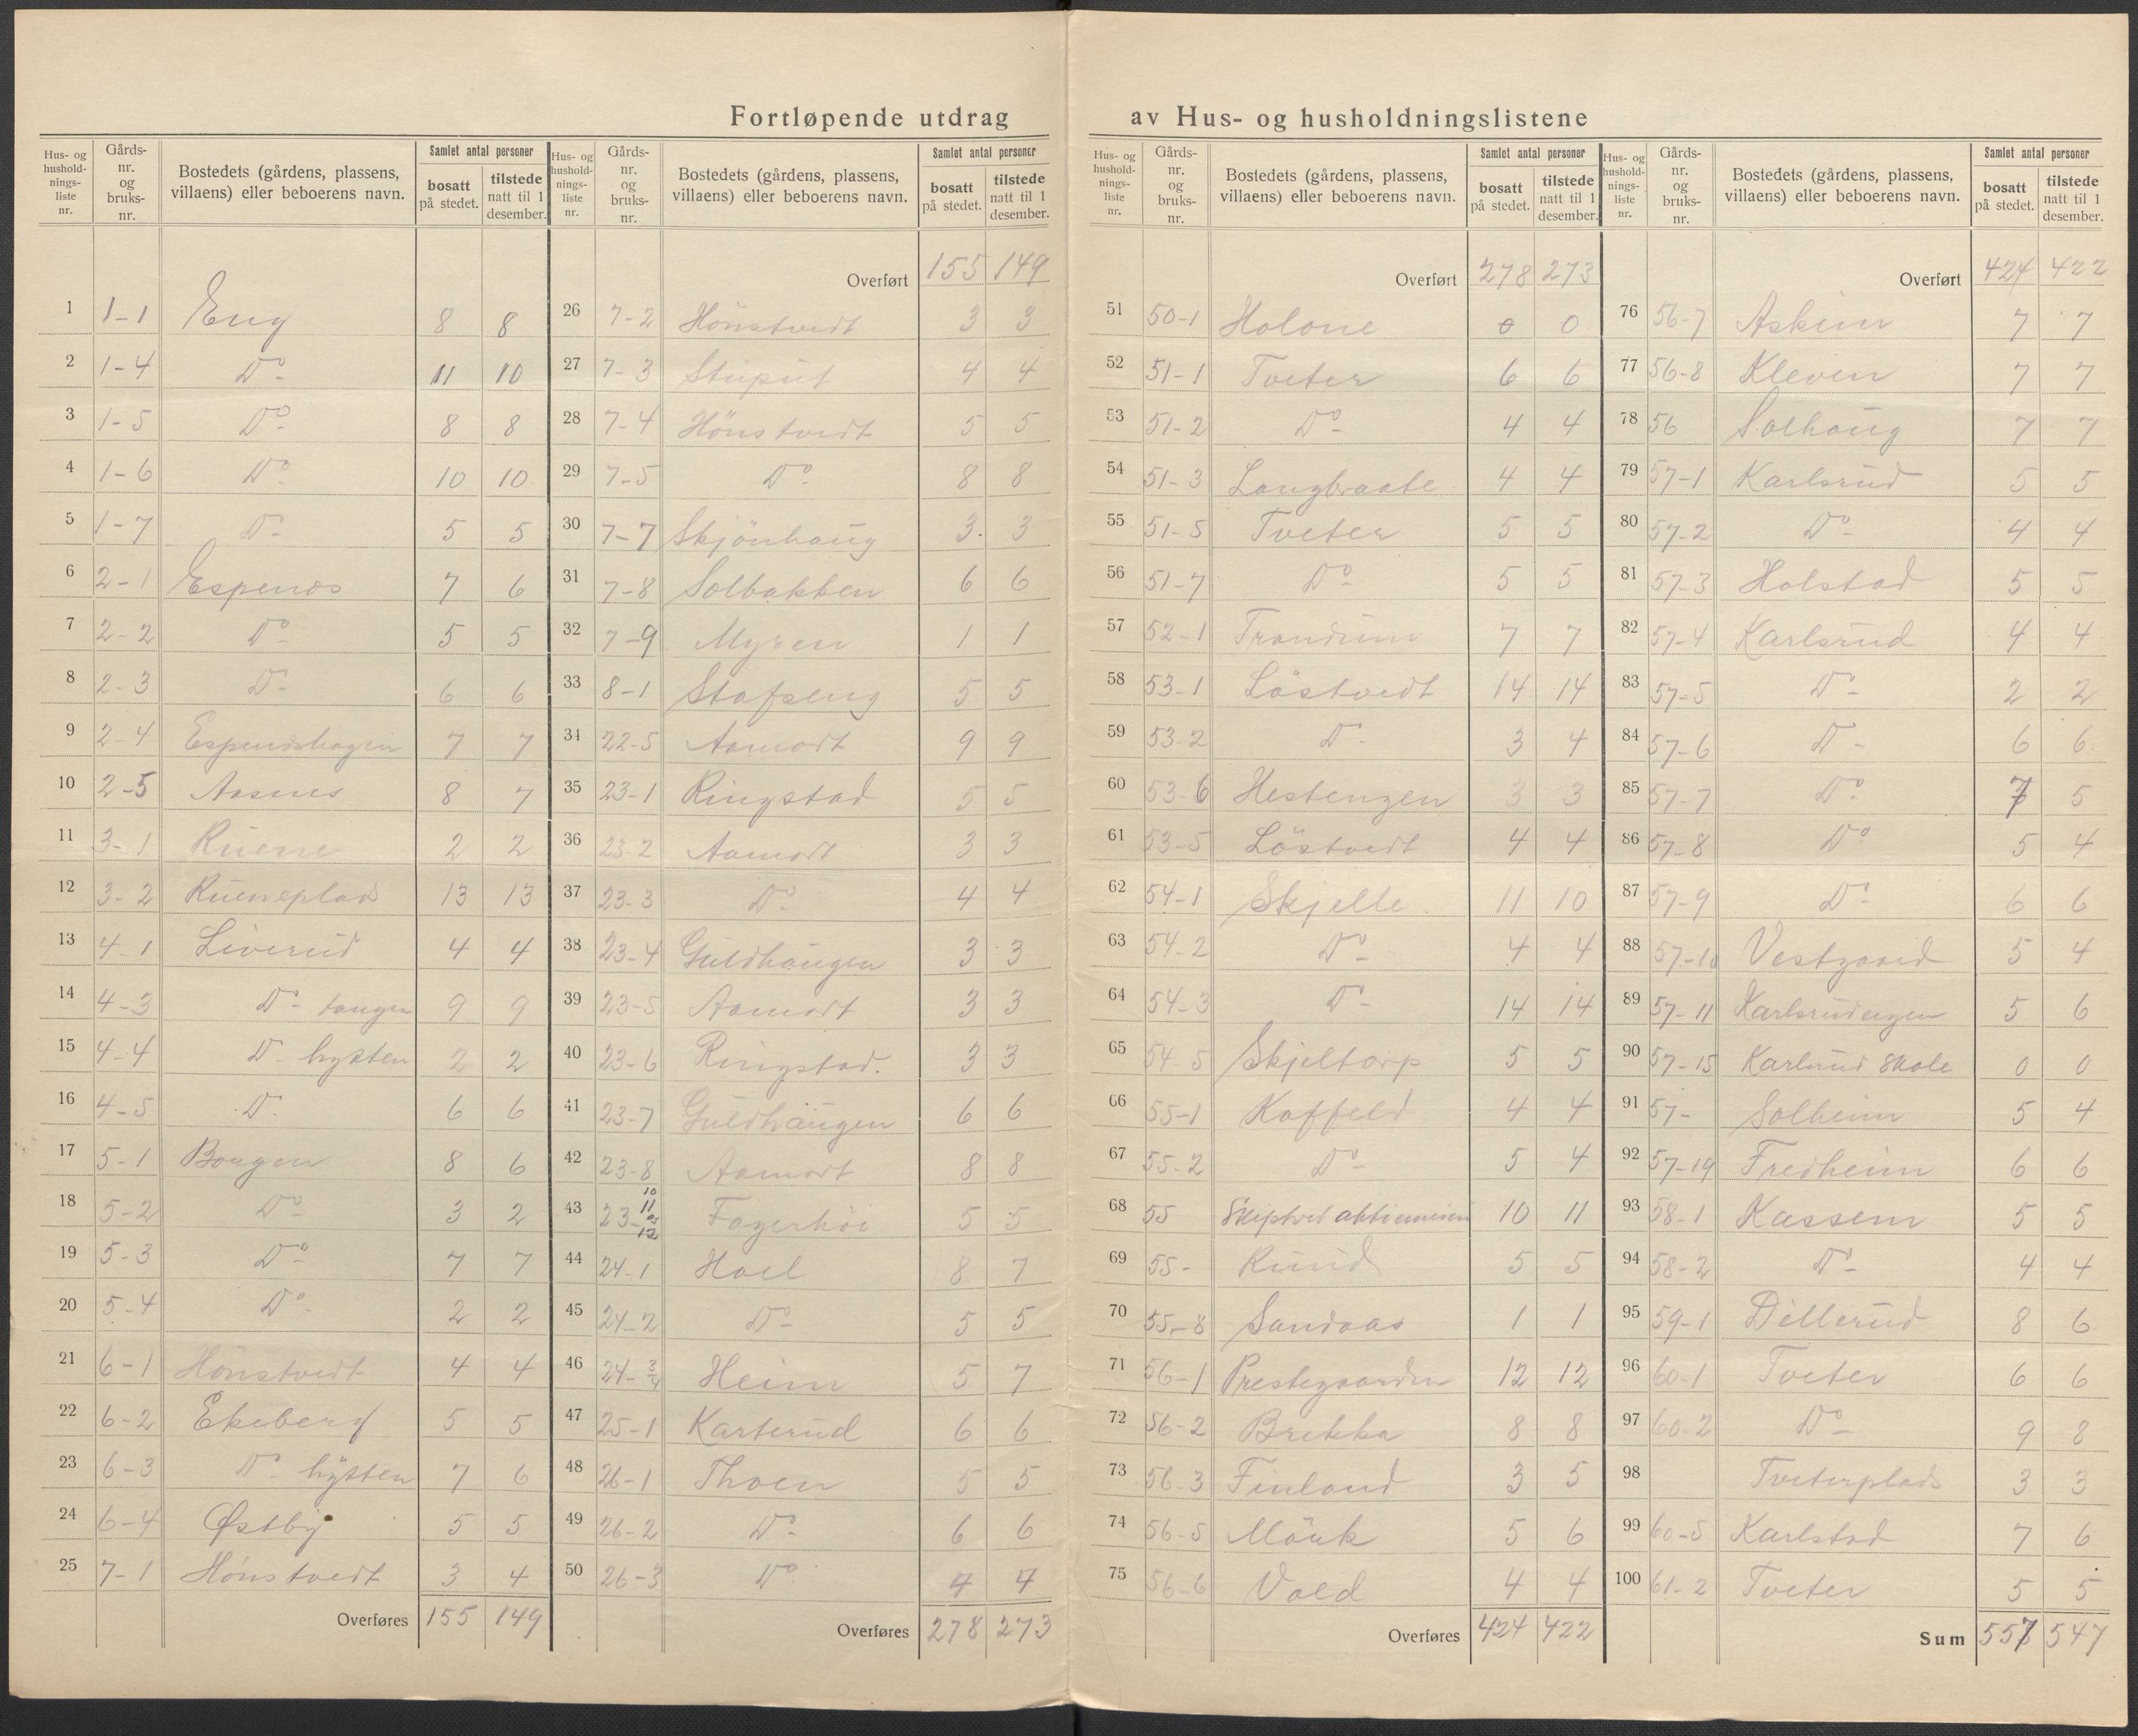 Fortløpende utdrag av Hus- og husholdningslistene
Hus- og hushold-nings-liste nr. Gårds-nr. og bruks-nr. Bostedets (gårdens, plassens, villaens) eller beboerens navn. Samlet antal personer bosatt på stedet. tilstede natt til 1 desember.
1 1-1 Eng 8 8
2 1-4 Do- 11 10
3 1-5 Do- 8 8
4 1-6 Do- 10 10
5 1-7 Do- 5 5
6 2-1 Espenes 7 6
7 2-2 Do- 5 5
8 2-3 Do- 6 6
9 2-4 Espeneshagen 7 7
10 2-5 Aasnes 8 7
11 3-1 2 2
12 3-2 13 13
13 4-1 Liverud 4 4
14 4-3 Do- tangen 9 9
15 4-4 Do- hytten 2 2
16 4-5 Do 6 6
17 5-1 Bongen 8 6
18 5-2 Do- 3 2
19 5-3 Do- 7 7
20 5-4 Do- 2 2
21 6-1 Hönstvedt 4 4
22 6-2 Ekeberg 5 5
23 6-3 Do- hytten 7 6
24 6-4 Østby 5 5
25 7-1 Hönstvedt 3 4
Overføres 155 149
Hus- og hushold-nings-liste nr. Gårds-nr. og bruks-nr. Bostedets (gårdens, plassens, villaens) eller beboerens navn. Samlet antal personer bosatt på stedet. tilstede natt til 1 desember.
Overført 155 149
26 7-2 Hönstvedt 3 3
27 7-3 Stuput 4 4
28 7-4 Hönstvedt 5 5
29 7-5 Do- 8 8
30 7-7 Skjönhaug 3 3
31 7-8 Solbakken 6 6
32 7-9 Myren 1 1
33 8-1 Stafseng 5 5
34 22-5 Aamodt 9 9
35 23-1 Ringstad 5 5
36 23-2 Aamodt 3 3
37 23-3 Do- 4 4
38 23-4 Guldhaugen 3 3
39 23-5 Aamodt 3 3
40 23-6 Ringstad. 3 3
41 23-7 Guldhaugen 6 6
42 23-8 Aamodt 8 8
43 23- 10 11 12 Fagerhöi 5 5
44 24-1 Hoel 8 7
45 24-2 Do- 5 5
46 24-3/4 Heim 5 7
47 25-1 Karterud 6 6
48 26-1 Thoen 5 5
49 26-2 Do- 6 6
50 26-3 Do 7 7
Overføres 278 273
Hus- og hushold-nings-liste nr. Gårds-nr. og bruks-nr. Bostedets (gårdens, plassens, villaens) eller beboerens navn. Samlet antal personer bosatt på stedet. tilstede natt til 1 desember.
Overført 278 273
51 50-1 Holone 0 0
52 51-1 Tveter 6 6
53 51-2 Do- 4 4
54 51-3 Langbraate 4 4
55 51-5 Tveter 5 5
56 51-7 Do- 5 5
57 52-1 Trandum 7 7
58 53-1 Löstvedt 14 14
59 53-2 Do- 3 4
60 53-6 Hestengen 3 3
61 53-5 Löstvedt 4 4
62 54-1 Skjelle 11 10
63 54-2 Do- 4 4
64 54-3 Do- 14 14
65 54-5 Skjeltorp 5 5
66 55-1 Koffeld 4 4
67 55-2 Do- 5 4
68 55 Skiptvet aktiemeieri 10 11
69 55- Rund 5 5
70 55-8 Sandaas 1 1
71 56-1 Prestegaarden 12 12
72 56-2 Brekka 8 8
73 56-3 Finland 3 5
74 56-5 Mörk 5 6
75 56-6 Vold 4 4
Overføres 424 422
Hus- og hushold-nings-liste nr. Gårds-nr. og bruks-nr. Bostedets (gårdens, plassens, villaens) eller beboerens navn. Samlet antal personer bosatt på stedet. tilstede natt til 1 desember.
Overført 424 422
76 56-7 Askim 7 7
77 56-8 Kleven 7 7
78 56 Solhaug 7 7
79 57-1 Karlsrud 5 5
80 57-2 Do- 4 4
81 57-3 Holstad 5 5
82 57-4 Karlsrud 4 4
83 57-5 Do- 2 2
84 57-6 Do- 6 6
85 57-7 Do- 7 5
86 57-8 Do 5 4
87 57-9 Do- 6 6
88 57-10 Vestgaard 5 4
89 57-11 Karlsrudengen 5 6
90 57-15 Karlsrud Skole 0 0
91 57- Solheim 5 4
92 57-19 Fredheim 6 6
93 58-1 Kassem 5 5
94 58-2 Do- 4 4
95 59-1 Dillerud 8 6
96 60-1 Tveter 6 6
97 60-2 Do- 9 8
98 Tveterplads 3 3
99 60-5 Karlstad 7 6
100 61-2 Tveter 5 5
Sum 557 547